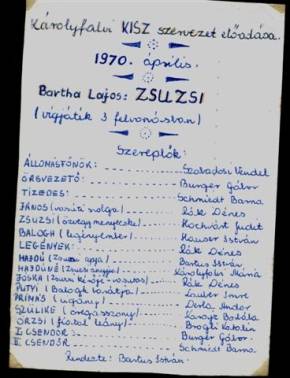 Károlyfalvi KISZ szervezet előadása.
1970. április.
Bartha Lajos: ZSUZSI
(vígjáték 3 felvonásban)
Szereplők:
ÁLLOMÁSFŐNÖK: Szabadosi Vendel
ŐRVEZETŐ: Burger Gábor
TIZEDES: Schmidt Barna
JÁNOS (vasúti szolga) Rák Dénes
ZSUZSI Horváth Judit
BALOGH (legényember) Hauser István
LEGÉNYEK: Rák Dénes
HAJDÚ (Zsuzsi apja) Bartus István
HAJDÚNÉ (Zsuzsi anyja) Károlyfalvi Mária
JOSKA Rák Dénes
PUTYI (Balogh barátja) Lauber Imre
PRIMÁS (cigány) Andor
SZÜLIKE (öregasszony) Karajz Borbála
ÖRZSI (fiatal leány) Brogli Katalin
I. CSENDŐR Burger Gábor
II. CSENDŐR Schmidt Barna
Rendezte: Bartus István.